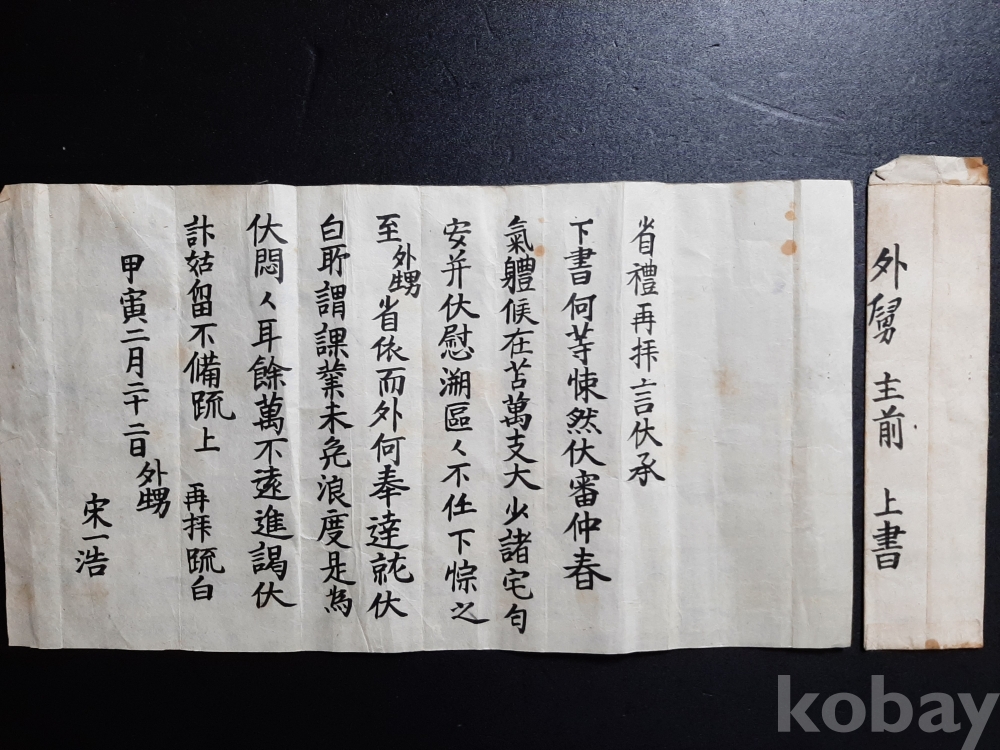 外舅 主前 上書
省禮再拜言伏承
下書何等悚然伏審仲春
氣軆候在苫萬支大少諸宅勻
安并伏慰溯區々不任下悰之
至外甥省依而外何奉達就伏
白所謂課業未免浪度是為
伏悶々耳餘萬不遠進謁伏
訃姑留不備䟽上 再拜䟽白
甲寅二月二十二日 外甥
宋一浩
kobay